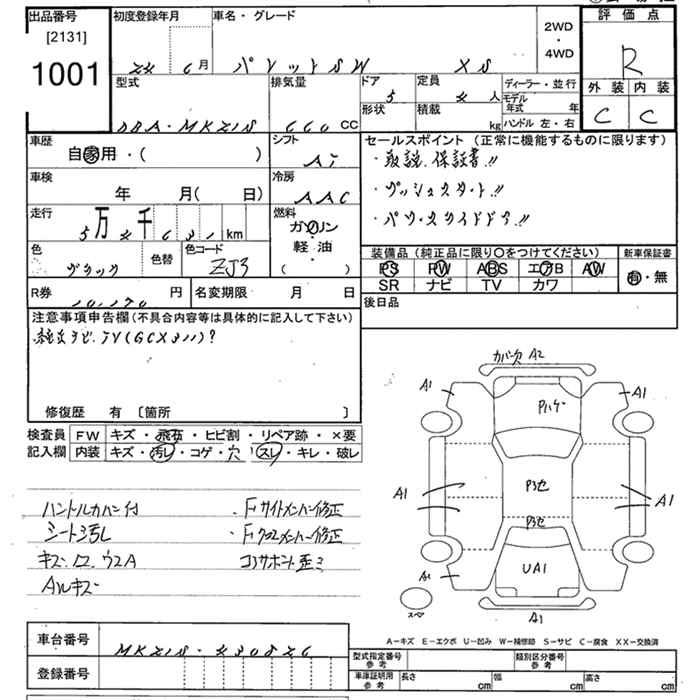 出品番号
[2131]
1001
初度登録年月
月
車名・グレード
パレットSW XS
2WD
・
4WD
評価点
R
外装 内装
C C
型式
DBA・MK21S
排気量
660 CC
ドア
5
形状
定員
人
積載
kg
ディーラー・並行
モデル年式 年
ハンドル 左・右
車歴
自家用・( )
シフト
AT
車検
年 月( 日)
冷房
AAC
走行
5万 千 km
燃料
ガソリン
軽油
( )
色
ブラック
色替
色コード
ZJ3
R券
円
名変期限 月 日
セールスポイント(正常に機能するものに限ります)
・取説.保証書!!
・プッシュスタート!!
・パワースライドドア!!
装備品(純正品に限り〇をつけてください)
新車保証書
PS PW ABS エアB AW
SR ナビ TV カワ
有・無
後日品
注意事項申告欄(不具合内容等は具体的に記入して下さい)
修復歴 有 〔箇所 〕
検査員
記入欄
FW キズ・飛石・ヒビ割・リペア跡・×要
内装 キズ・汚レ・コゲ・穴・スレ・キレ・破レ
ハンドルカバー付
シート汚レ
アルキズ
・Fサイドメンバー修正
・Fクロスメンバー修正
コアサポート歪ミ
カバー欠 A2
A1
A1
Pハゲ
A1
P3セ
A1
P3セ
UA1
A1
スペア
A1
A-キズ E-エクボ U-凹み W-補修跡 S-サビ C-腐食 XX-交換済
車台番号
登録番号
型式指定番号
参考
類別区分番号
参考
車庫証明用
参考
長さ cm
幅 cm
高さ cm